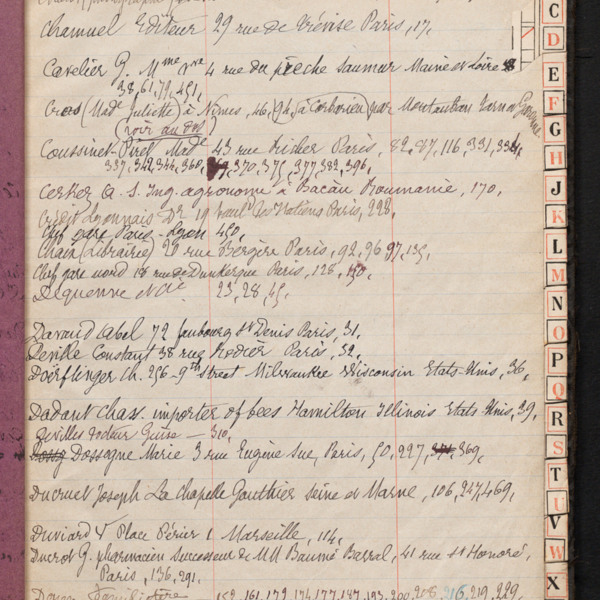 Chamuel Editeur 29 rue de Trévise Paris, 17,
Cavelier G. Mme Vve 4 rue du prêche Saumur Maine et Loire
38,61,79,451,
Cros (Made Juliette) à Nîmes, 46, 94, à Corbarieu par Montauban Tarn et Garonne
(voir au dos)
Coussinet-Pirel Made 43 rue Richer Paris, 82,87,116,331,334,
337,342,344,368, 370,375,377,382,396,
Cerkez A. S. Ing. agronome à Bacău Roumanie, 170,
Crédit Lyonnais Dr 19 boul. des Italiens Paris, 228,
Chef gare Paris-Lyon 450,
Chaix (Librairie) 20 rue Bergère Paris, 92,96,97,135,
Chef gare nord 18 rue de Dunkerque Paris, 128, 150,
Dequenne 23,28,45,
Davaud Abel 72 faubourg St Denis Paris, 31,
Deville Constant 38 rue Rodier Paris, 32,
Doërflinger Ch. 256-9th Street Milwaukee Wisconsin Etats-Unis, 36,
Dadant Chas. importer of bees Hamilton Illinois Etats Unis, 39,
Devilles docteur Guise — 310,
Dossogne Marie 3 rue Eugène Sue, Paris, 50,227, 369,
Ducruel Joseph La Chapelle Gauthier Seine et Marne, 106,247,469,
Duviard V Place Périer 1 Marseille, 114,
Ducrot G. pharmacien successeur de MM Baumé Barral, 41 rue St Honoré,
Paris, 136,291,
152,161,172,174,177,187,193,200,208,216,219,229,
C
D
E
F
G
H
J
K
L
M
N
O
P
Q
R
S
T
U
V
W
X